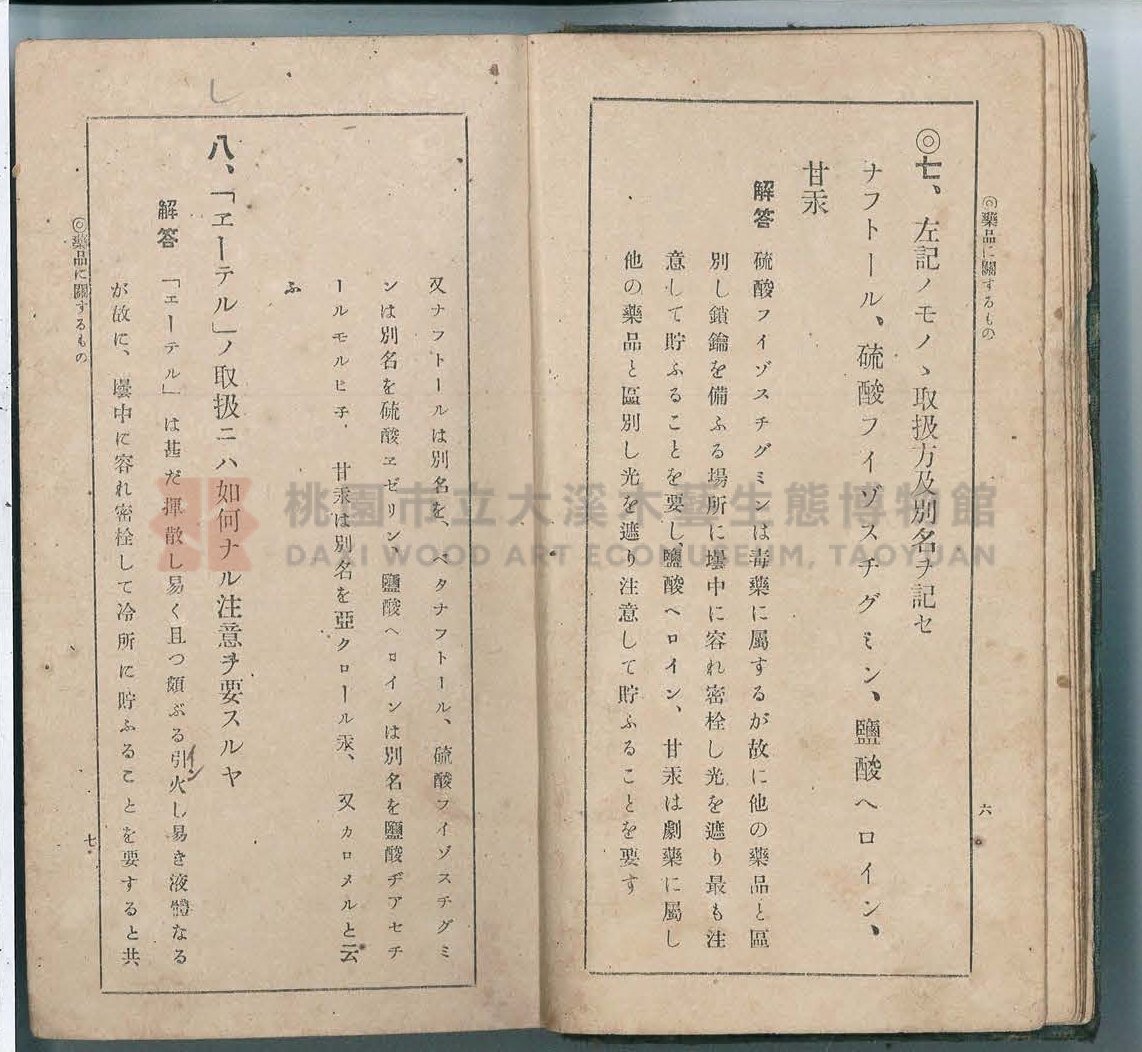 ◎藥品に關するもの
六
◎七、左記ノモノヽ取扱方及別名ヲ記セ
ナフトール、硫酸フイゾスチグミン、鹽酸ヘロイン、
甘汞
解答 硫酸フイゾスチグミンは毒藥に屬するが故に他の藥品と區
別し鎖鑰を備ふる場所に壜中に容れ密栓し光を遮り最も注
意して貯ふることを要し、鹽酸ヘロイン、甘汞は劇藥に屬し
他の藥品と區別し光を遮り注意して貯ふることを要す
又ナフトールは別名を、ベタナフトール、硫酸フイゾスチグミ
ンは別名を硫酸ヱゼリン、鹽酸ヘロインは別名を鹽酸ヂアセチ
ールモルヒ子、甘汞は別名を亞クロール汞、又カロメルと云
ふ
八、「ヱーテル」ノ取扱ニハ如何ナル注意ヲ要スルヤ
解答 「エーテル」は甚だ揮散し易く且つ頗ぶる引火し易き液體なる
イン
が故に、壜中に容れ密栓して冷所に貯ふることを要すると共
◎藥品に關するもの
七
桃園市立大溪木藝生態博物館
DAXI WOOD ART ECOMUSEUM, TAOYUAN